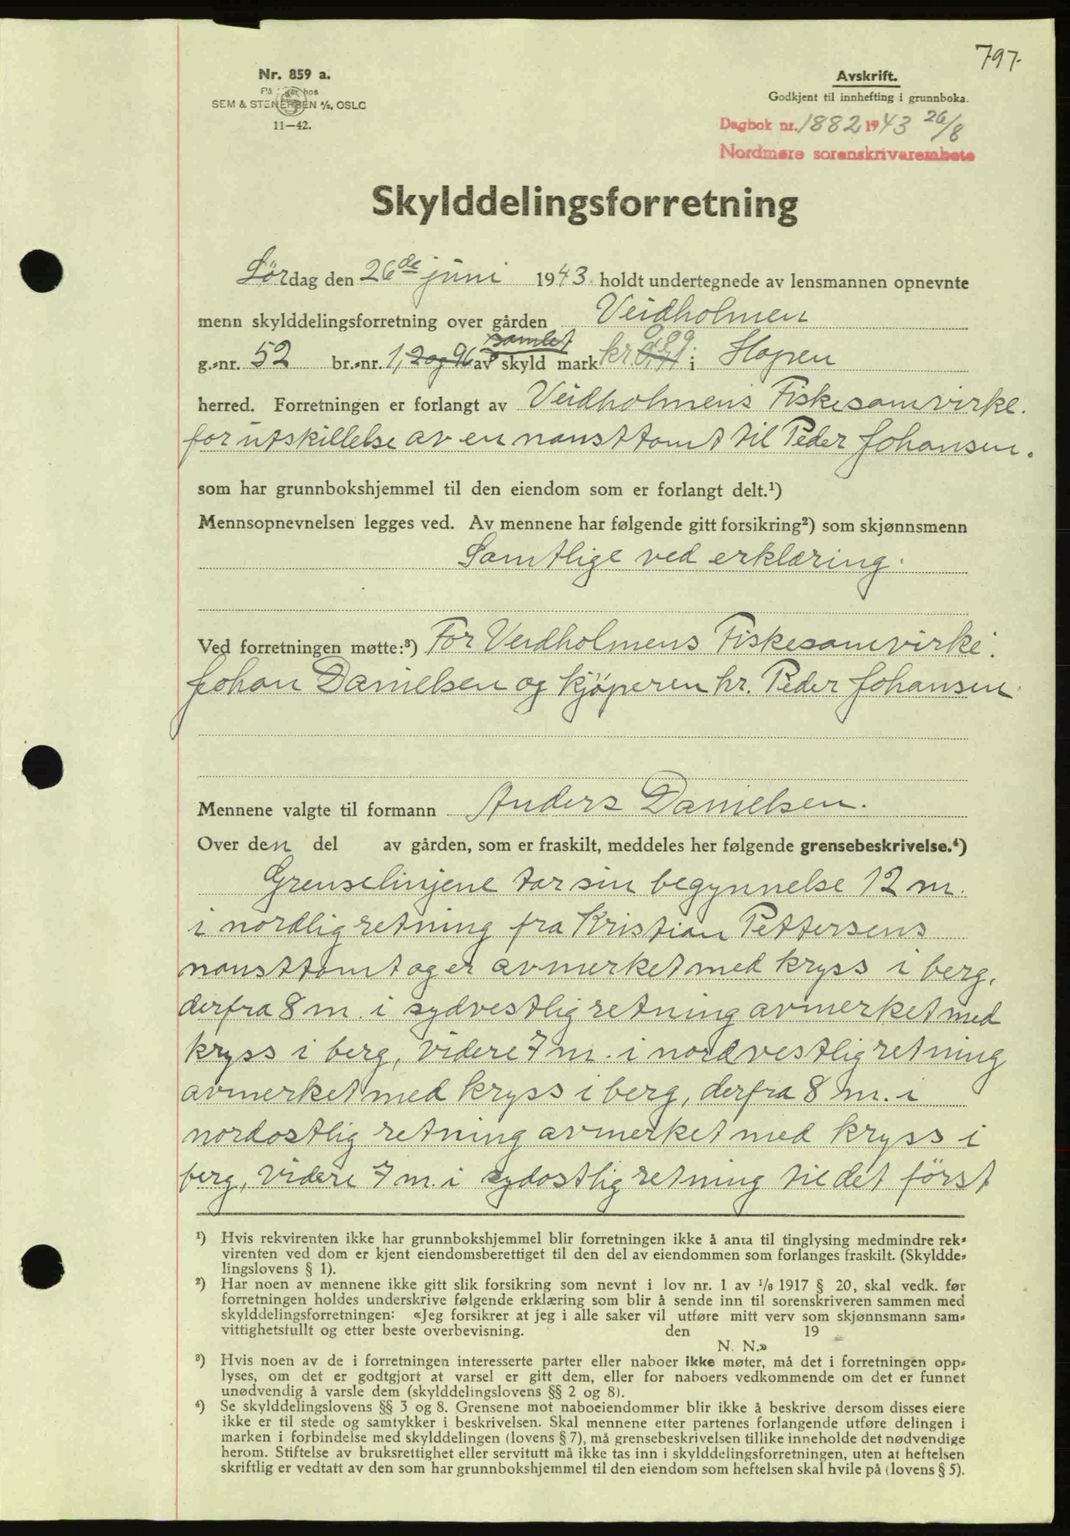 797.
Nr. 859 a.
På lager hos
SEM & STENERSEN A/S, OSLO
11—42.
Avskrift.
Godkjent til innhefting i grunnboka.
Dagbok nr. 1882 1943 26/8
Nordmøre sorenskrivarembete
Skylddelingsforretning
Lördag den 26de juni 1943. holdt undertegnede av lensmannen opnevnte
menn skylddelingsforretning over gården Veidholmen
g.-nr. 52 br.-nr. 1, 2 og 96 av samlet skyld mark kr. i Hopen
herred. Forretningen er forlangt av Veidholmens Fiskesamvirke.
for utskillelse av en nausttomt til Peder Johansen.
som har grunnbokshjemmel til den eiendom som er forlangt delt.¹)
Mennsopnevnelsen legges ved. Av mennene har følgende gitt forsikring²) som skjønnsmenn
Samtlige ved erklæring.
Ved forretningen møtte:³) For Veidholmens Fiskesamvirke:
Johan Danielsen og kjöperen hr. Peder Johansen.
Mennene valgte til formann Anders Danielsen.
Over den del av gården, som er fraskilt, meddeles her følgende grensebeskrivelse.⁴)
Grenselinjene tar sin begynnelse 12 m.
i nordlig retning fra Kristian Pettersens
nausttomt og er avmerket med kryss i berg,
derfra 8 m. i sydvestlig retning avmerket med
kryss i berg, videre 7 m. i nordvestlig retning
avmerket med kryss i berg, derfra 8 m. i
nordostlig retning avmerket med kryss i
berg, videre 7 m. i sydostlig retning til det först
¹) Hvis rekvirenten ikke har grunnbokshjemmel blir forretningen ikke å anta til tinglysing medmindre rek-
virenten ved dom er kjent eiendomsberettiget til den del av eiendommen som forlanges fraskilt. (Skyldde-
lingslovens § 1).
²) Har noen av mennene ikke gitt slik forsikring som nevnt i lov nr. 1 av 1/8 1917 § 20, skal vedk. før
forretningen holdes underskrive følgende erklæring som blir å sende inn til sorenskriveren sammen med
skylddelingsforretningen: «Jeg forsikrer at jeg i alle saker vil utføre mitt verv som skjønnsmann sam-
vittighetsfullt og etter beste overbevisning. den 19
N. N.»
³) Hvis noen av de i forretningen interesserte parter eller naboer ikke møter, må det i forretningen opp-
lyses, om det er godtgjort at varsel er gitt dem, eller for naboers vedkommende om det er funnet
unødvendig å varsle dem (skylddelingslovens §§ 2 og 8).
⁴) Se skylddelingslovens §§ 3 og 8. Grensene mot naboeiendommer blir ikke å beskrive dersom disses eiere
ikke er til stede og samtykker i beskrivelsen. Skal mennene etter partenes forlangende utføre delingen i
marken i forbindelse med skylddelingen (lovens § 7), må grensebeskrivelsen tillike inneholde det nødvendige
herom. Stiftelse av bruksrettighet eller servitutt må ikke tas inn i skylddelingsforretningen, uten at heftelsen
skriftlig er vedtatt av den som har grunnbokshjemmel til den eiendom som heftelsen skal hvile på (lovens § 5).